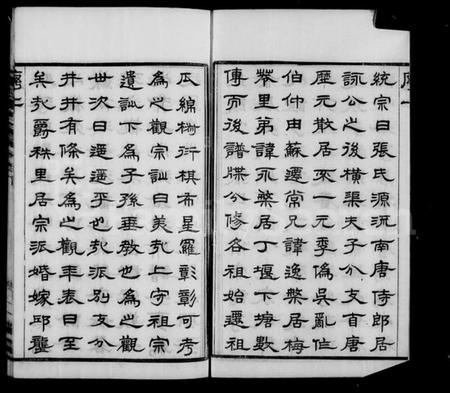 統宗曰張氏源流南唐侍郎居
詠公之後橫渠夫子分支百唐
歷元散居來一元季偽吳亂作
伯仲由蘇遷常兄諱逸槩居梅
里第諱永槩居丁堰下塘數
傳而後譜牒分修各祖始遷祖
瓜綿樹衍棋布星羅彰彰可考
為之觀宗訓曰美哉上守祖宗
遺訓下為子孫垂教也為之觀
世次曰遝遝乎也哉派別支分
井井有條矣為之觀年表曰至
矣哉爵秩里居宗派婚嫁邱壟
序一
序二